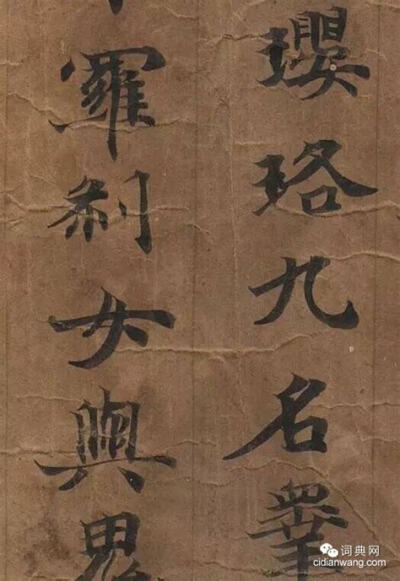 瓔珞九名
羅刹女與鬼
词典网
cidianwang.com